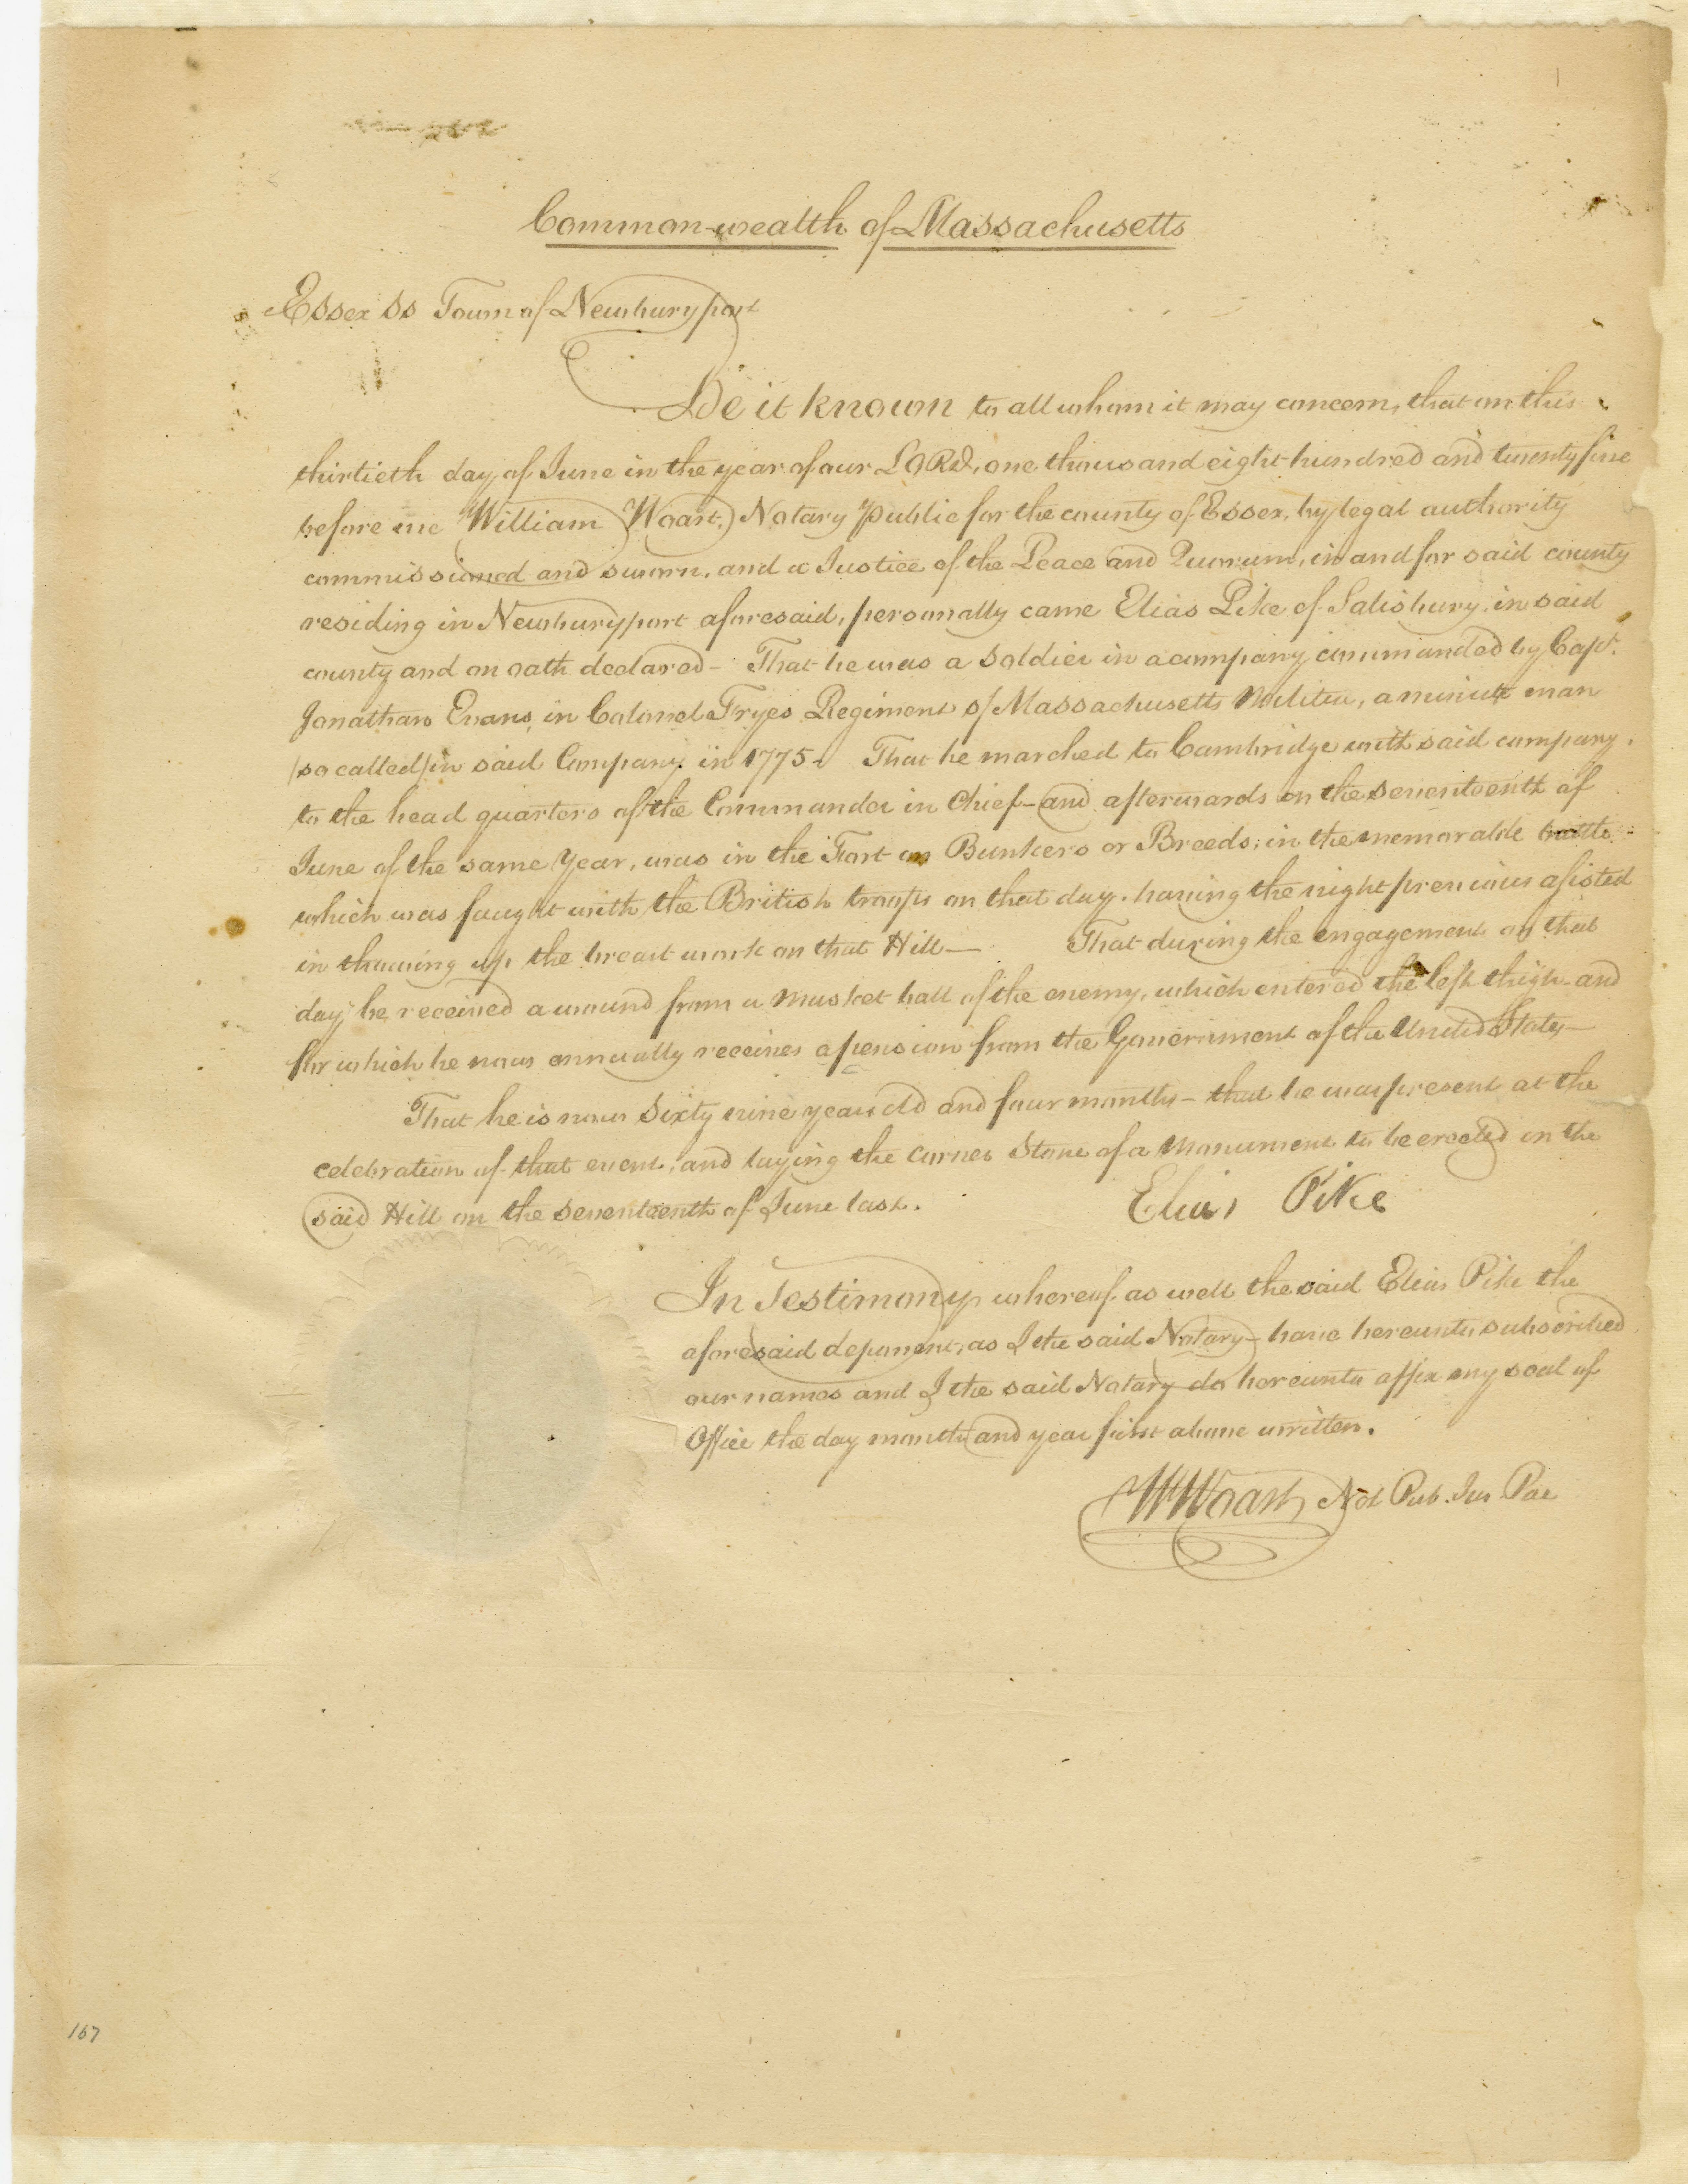 Common-wealth of Massachusetts
Essex ss Town of Newburyport
Be it known to all whom it may concern, that on this
thirtieth day of June in the year of our LORD, one thousand eight hundred and twenty five
before me William Woart, Notary Public for the county of Essex, by legal authority
commissioned and sworn, and a Justice of the Peace and Quorum, in and for said county
residing in Newburyport aforesaid, personally came Elias Pike of Salisbury, in said
county and on oath declared - That he was a soldier in a company commanded by Capt.
Jonathan Evans, in Colonel Fryes Regiment of Massachusetts Militia, a minute man
(so called) in said Company in 1775 - That he marched to Cambridge with said company,
to the head quarters of the Commander in Chief - and afterwards on the seventeenth of
June of the same Year, was in the Fort on Bunkers or Breeds; in the memorable battle
which was fought with the British troops on that day. having the night previous assisted
in throwing up the breast work on that Hill — That during the engagement on that
day he received a wound from a musket ball of the enemy, which entered the left thigh - and
for which he now annually receives a pension from the Government of the United States —
That he is now Sixty nine years old and four months - that he was present at the
celebration of that event, and laying the corner Stone of a Monument to be erected on the
said Hill on the seventeenth of June last.
Elias Pike
In Testimony whereof as well the said Elias Pike the
aforesaid deponent, as I the said Notary - have hereunto subscribed
our names and I the said Notary do hereunto affix my seal of
Office the day month and year first above written.
W Woart Not Pub. Jus. Pac
167